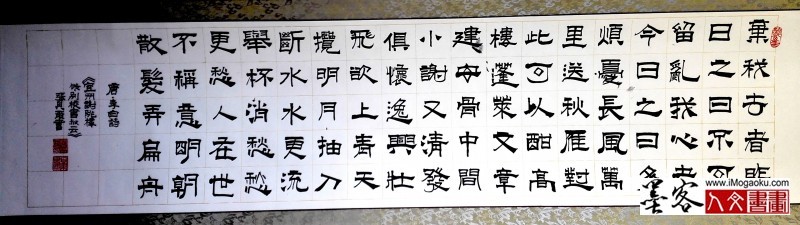 棄我去者昨
日之日不可
留亂我心者
今日之日多
煩憂長風萬
里送秋雁對
此可以酣高
樓蓬萊文章
建安骨中間
小謝又清發
俱懷逸興壯
飛欲上青天
攬明月抽刀
斷水水更流
舉杯消愁愁
更愁人在世
不稱意明朝
散髮弄扁舟
唐李白詩
《宣州謝朓樓
餞別校書叔云》
書
墨客
www.iMogaoku.com
人文書畫